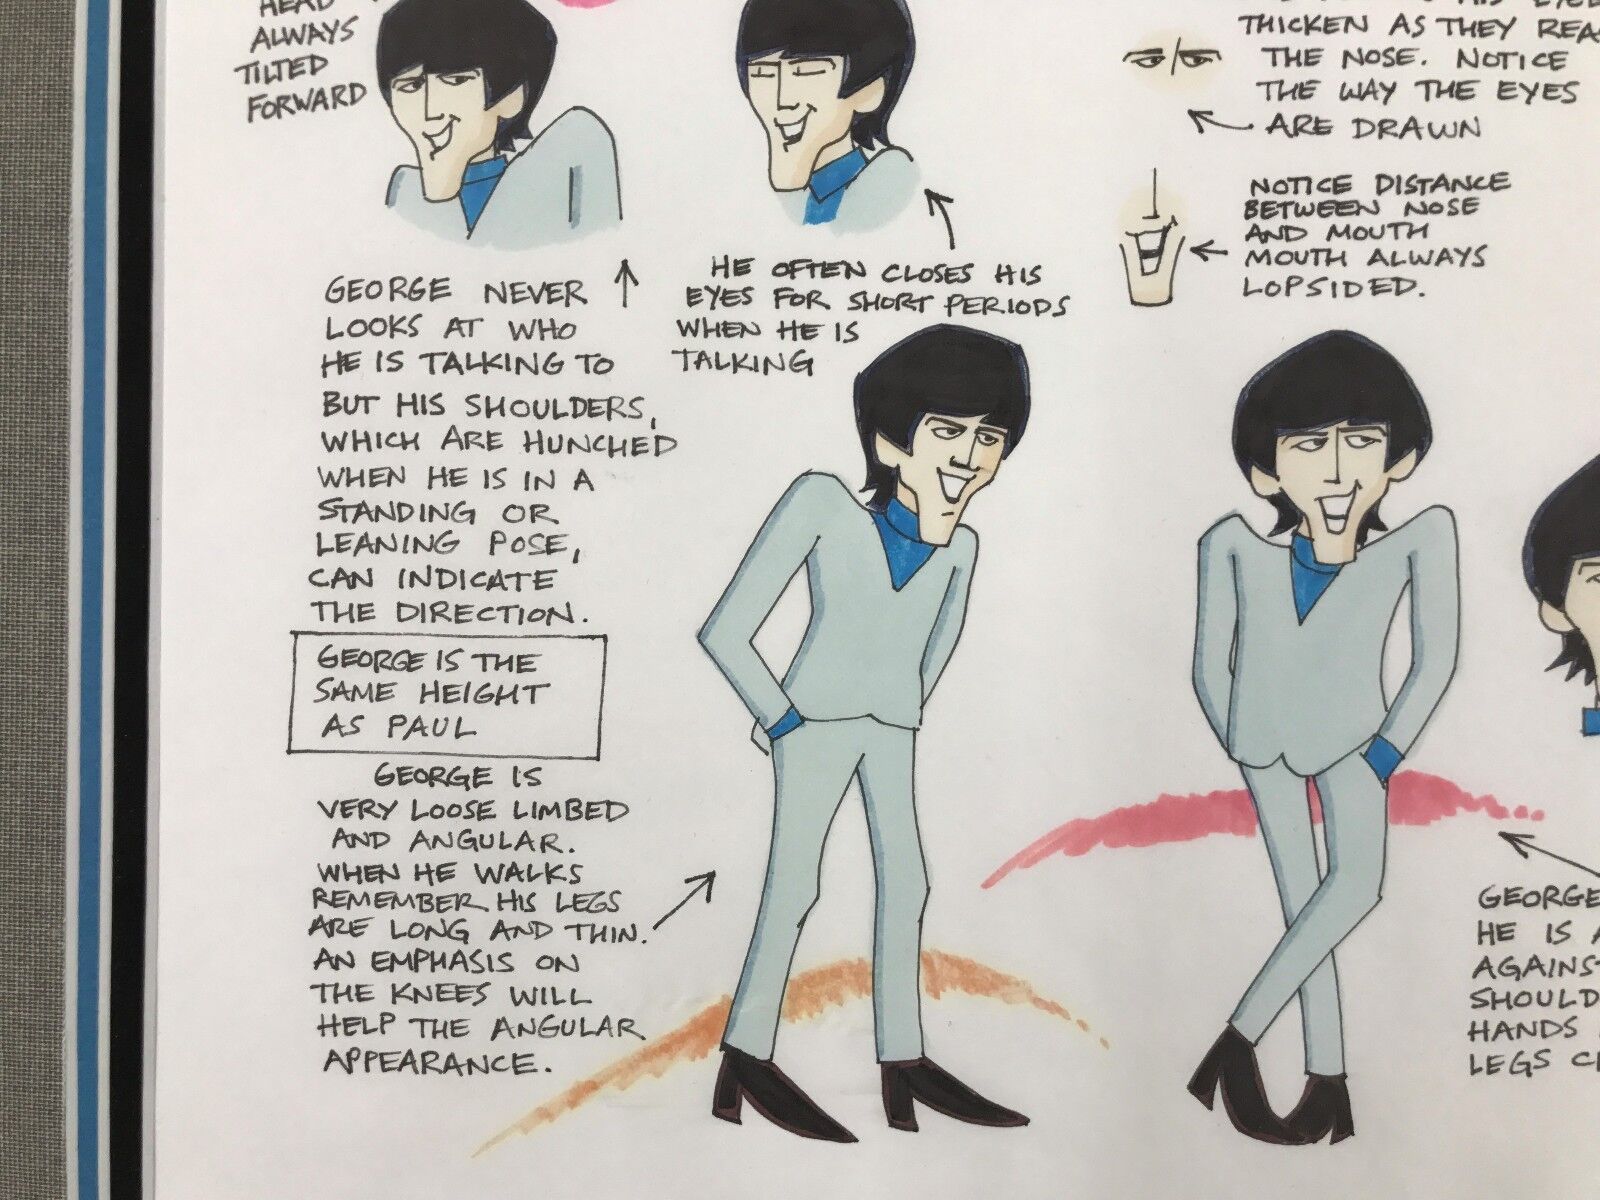 HEAD
ALWAYS
TILTED
FORWARD
GEORGE NEVER
LOOKS AT WHO
HE IS TALKING TO
BUT HIS SHOULDERS,
WHICH ARE HUNCHED
WHEN HE IS IN A
STANDING OR
LEANING POSE,
CAN INDICATE
THE DIRECTION.
GEORGE IS THE
SAME HEIGHT
AS PAUL
GEORGE IS
VERY LOOSE LIMBED
AND ANGULAR.
WHEN HE WALKS
REMEMBER HIS LEGS
ARE LONG AND THIN.
AN EMPHASIS ON
THE KNEES WILL
HELP THE ANGULAR
APPEARANCE.
HE OFTEN CLOSES HIS
EYES FOR SHORT PERIODS
WHEN HE IS
TALKING
HIS EYE
THICKEN AS THEY REA
THE NOSE. NOTICE
THE WAY THE EYES
ARE DRAWN
NOTICE DISTANCE
BETWEEN NOSE
AND MOUTH
MOUTH ALWAYS
LOPSIDED.
GEORGE
HE IS A
AGAINST
SHOULD
HANDS
LEGS C